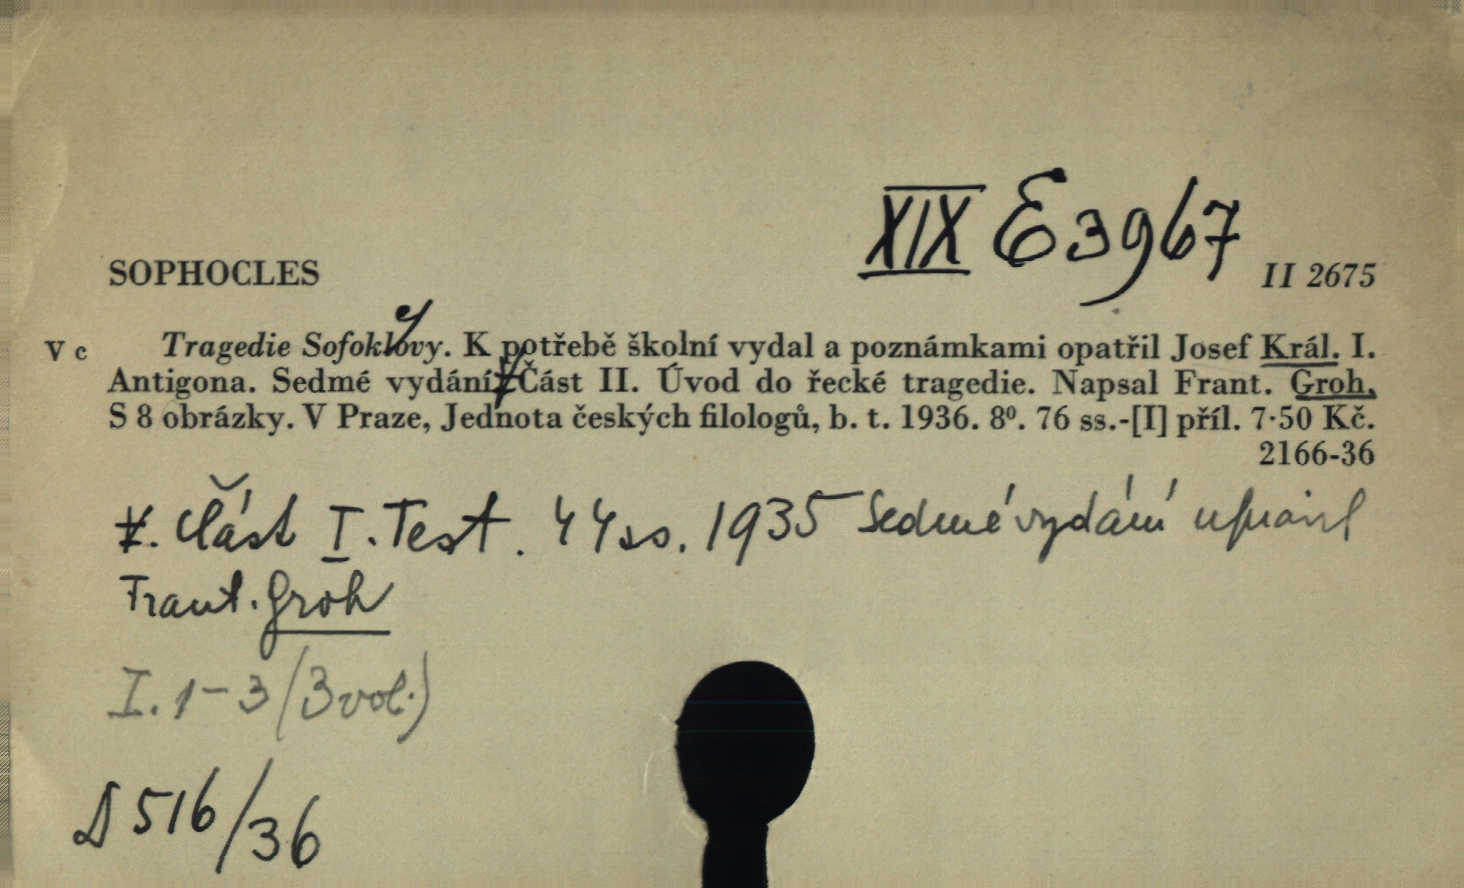 XIX E 3967
SOPHOCLES II 2675
V c Tragedie Sofoklovy. K potřebě školní vydal a poznámkami opatřil Josef Král. I.
Antigona. Sedmé vydání. Část II. Úvod do řecké tragedie. Napsal Frant. Groh.
S 8 obrázky. V Praze, Jednota českých filologů, b. t. 1936. 8⁰. 76 ss.-[I] příl. 7·50 Kč.
2166-36
Část I. Test. 44 ss. 1935 Sedmé vydání upravil
Frant. Groh
I. 1-3 (3 vol.)
D 516/36